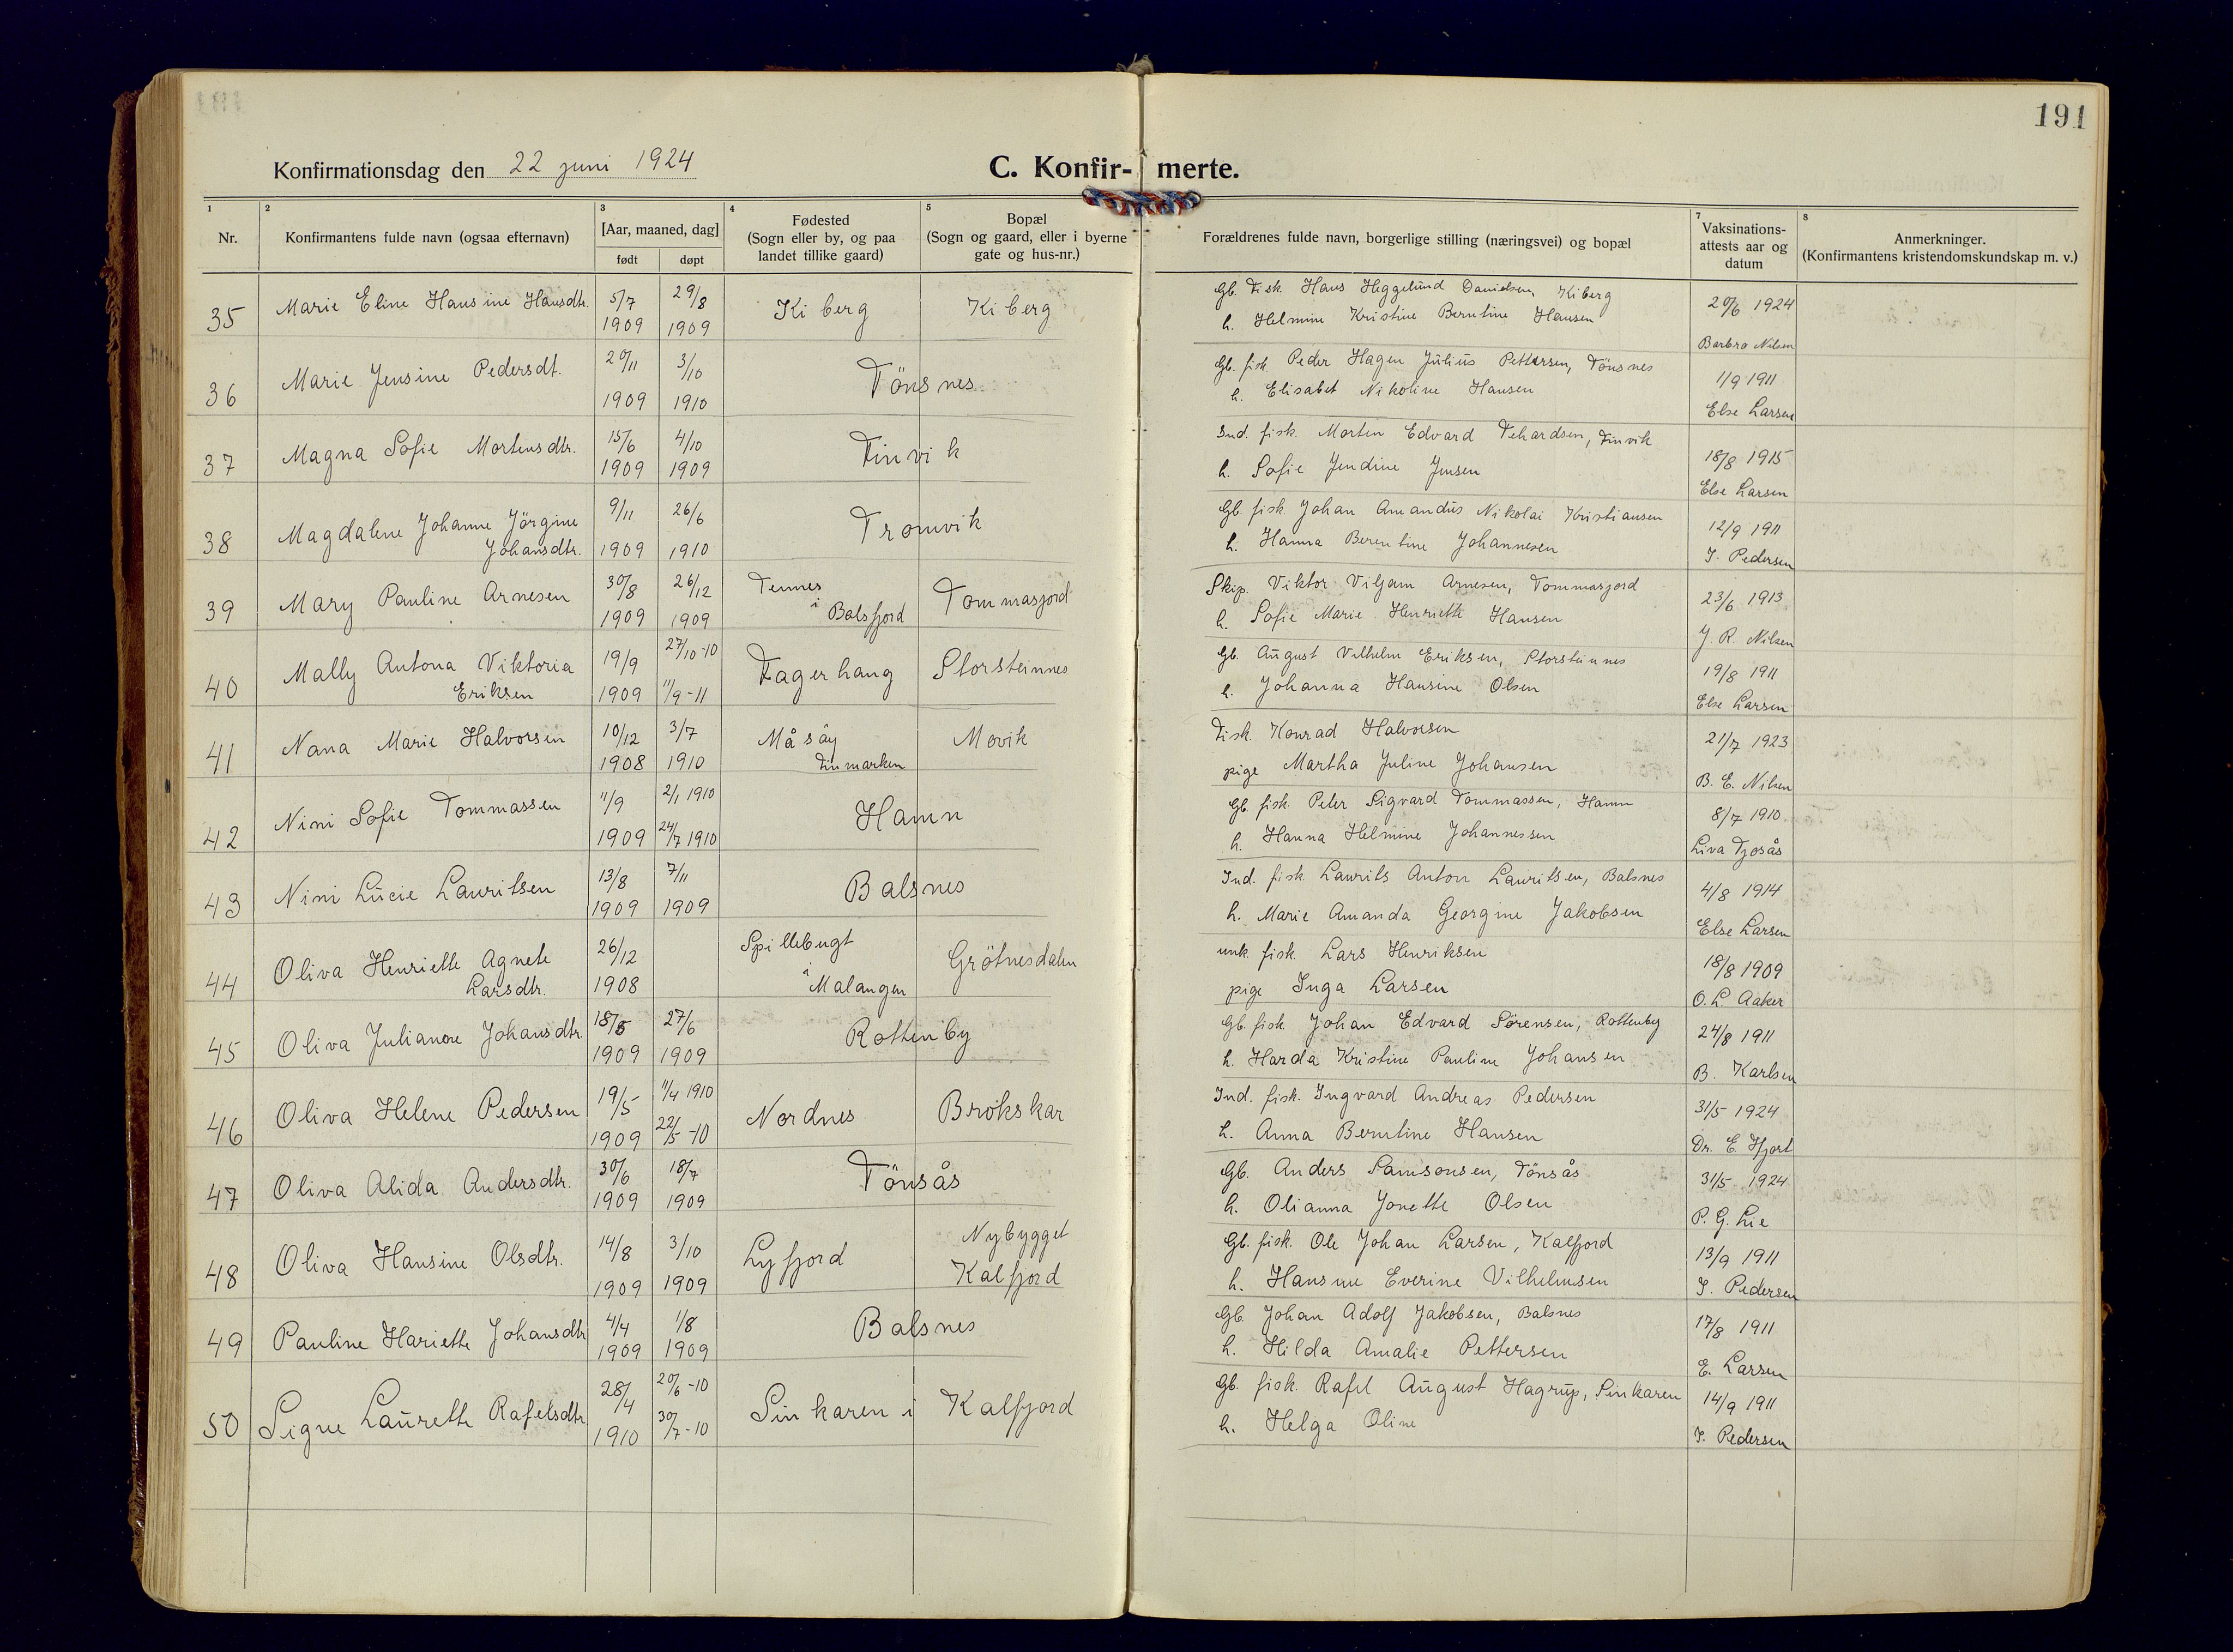 191
Konfirmationsdag den 22 juni 1924
C. Konfir- merte.
1 Nr.
2 Konfirmantens fulde navn (ogsaa efternavn)
3 [Aar, maaned, dag]
født døpt
4 Fødested (Sogn eller by, og paa landet tillike gaard)
5 Bopæl (Sogn og gaard, eller i byerne gate og hus-nr.)
Forældrenes fulde navn, borgerlige stilling (næringsvei) og bopæl
7 Vaksinations-attests aar og datum
8 Anmerkninger. (Konfirmantens kristendomskundskap m. v.)
35 Marie Eline Hansine Hansdtr. 5/7 1909 29/8 1909 Kiberg Kiberg
Gb. Fisk. Hans Heggelund Danielsen, Kiberg
h. Helmine Kristine Berntine Hansen
20/6 1924
Barbra Nilsen
36 Marie Jensine Pedersdt. 20/11 1909 3/10 1910 Tönsnes
Gb. fisk. Peder Hagen Julius Pettersen, Tönsnes
h. Elisabet Nikoline Hansen
1/9 1911
Else Larsen
37 Magna Sofie Mortensdtr. 15/6 1909 4/10 1909 Finvik
Ind. fisk. Morten Edvard Fehardsen, Finvik
h. Sofie Jendine Jensen
18/8 1915
Else Larsen
38 Magdalene Johanne Jörgine
Johansdtr. 9/11 1909 26/6 1910 Tromvik
Gb. fisk. Johan Amandus Nikolai Kristiansen
h. Hanna Berentine Johannesen
12/9 1911
I. Pedersen
39 Mary Pauline Arnesen 30/8 1909 26/12 1909 Tennes i Balsfjord Tommasjord
Skip. Viktor Viljam Arnesen, Tommasjord
h. Sofie Marie Henriette Hansen
23/6 1913
J. R. Nilsen
40 Mally Antona Viktoria
Eriksen 19/9 1909 27/10-10 11/9-11 Fagerhaug Storsteinnes
Gb. August Vilhelm Eriksen, Storsteinnes
h. Johanna Hansine Olsen
19/8 1911
Else Larsen
41 Nana Marie Halvorsen 10/12 1908 3/7 1910 Måsöy Finmarken Movik
Fisk. Konrad Halvorsen
pige Martha Juline Johansen
21/7 1923
B. E. Nilsen
42 Nini Sofie Tommassen 11/9 1909 2/1 1910 24/7 1910 Hamn
Gb. fisk. Peter Sigvard Tommassen, Hamn
h. Hanna Helmine Johannessen
8/7 1910
Liva Tjosås
43 Nini Lucie Lauritsen 13/8 1909 7/11 1909 Balsnes
Ind. fisk. Laurits Anton Lauritsen, Balsnes
h. Marie Amanda Georgine Jakobsen
4/8 1914
Else Larsen
44 Oliva Henriette Agnete
Larsdtr. 26/12 1908 Spillebugt i Malangen Grötnesdalen
unk. fisk. Lars Henriksen
pige Inga Larsen
18/8 1909
O. L. Aaker
45 Oliva Julianne Johansdtr. 18/5 1909 27/6 1909 Rottenby
Gb. fisk. Johan Edvard Sörensen, Rottenby
h. Harda Kristine Pauline Johansen
24/8 1911
B. Karlsen
46 Oliva Helene Pedersen 19/5 1909 11/4 1910 22/5-10 Nordnes Brökskar
Ind. fisk. Ingvard Andreas Pedersen
h. Anna Berntine Hansen
31/5 1924
Dr. E. Hjort
47 Oliva Alida Andersdtr. 30/6 1909 18/7 1909 Tönsås
Gb. Anders Samsonsen, Tönsås
h. Olianna Jonette Olsen
31/5 1924
P. G. Lie
48 Oliva Hansine Olsdtr. 14/8 1909 3/10 1909 Lyfjord Nybygget Kalfjord
Gb. fisk. Ole Johan Larsen, Kalfjord
h. Hansine Everine Vilhelmsen
13/9 1911
I. Pedersen
49 Pauline Hariette Johansdtr 4/4 1909 1/8 1909 Balsnes
Gb. Johan Adolf Jakobsen, Balsnes
h. Hilda Amalie Pettersen
17/8 1911
E. Larsen
50 Signe Laurette Rafelsdtr 28/4 1910 20/6-10 30/7-10 Sinkaren i Kalfjord
Gb. fisk. Rafel August Hagrup, Sinkaren
h. Helga Oline
14/9 1911
I. Pedersen